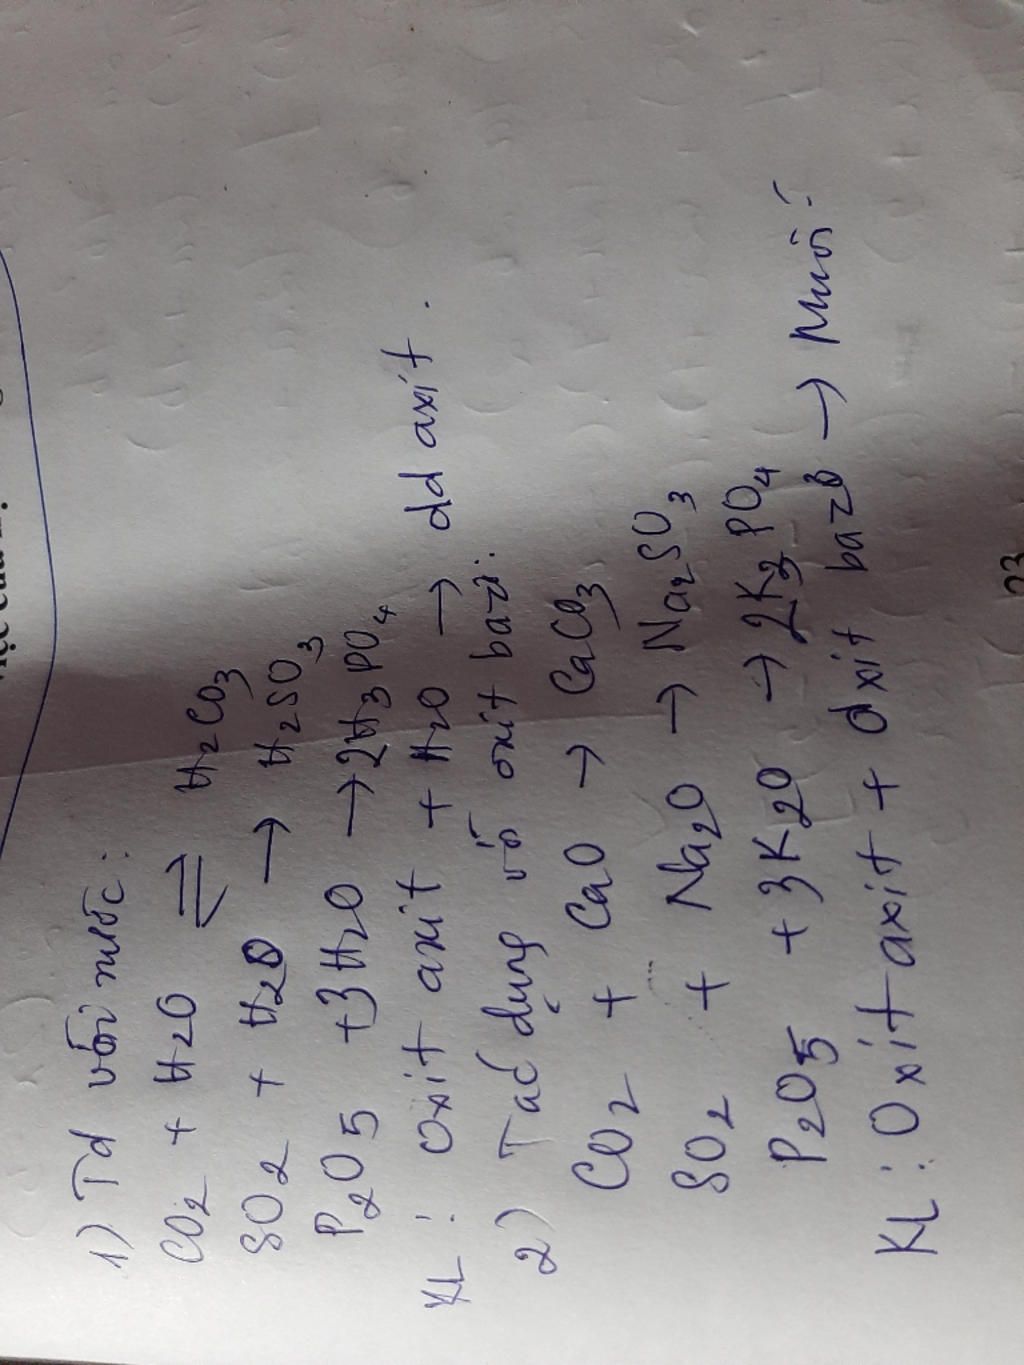 1) Td với nước:
CO2 + H2O ⇌ H2CO3
SO2 + H2O → H2SO3
P2O5 + 3H2O → 2H3PO4
KL: Oxit axit + H2O → dd axit.
2) Tác dụng với oxit bazơ:
CO2 + CaO → CaCO3
SO2 + Na2O → Na2SO3
P2O5 + 3K2O → 2K3PO4
KL: Oxit axit + Oxit bazơ → Muối
23